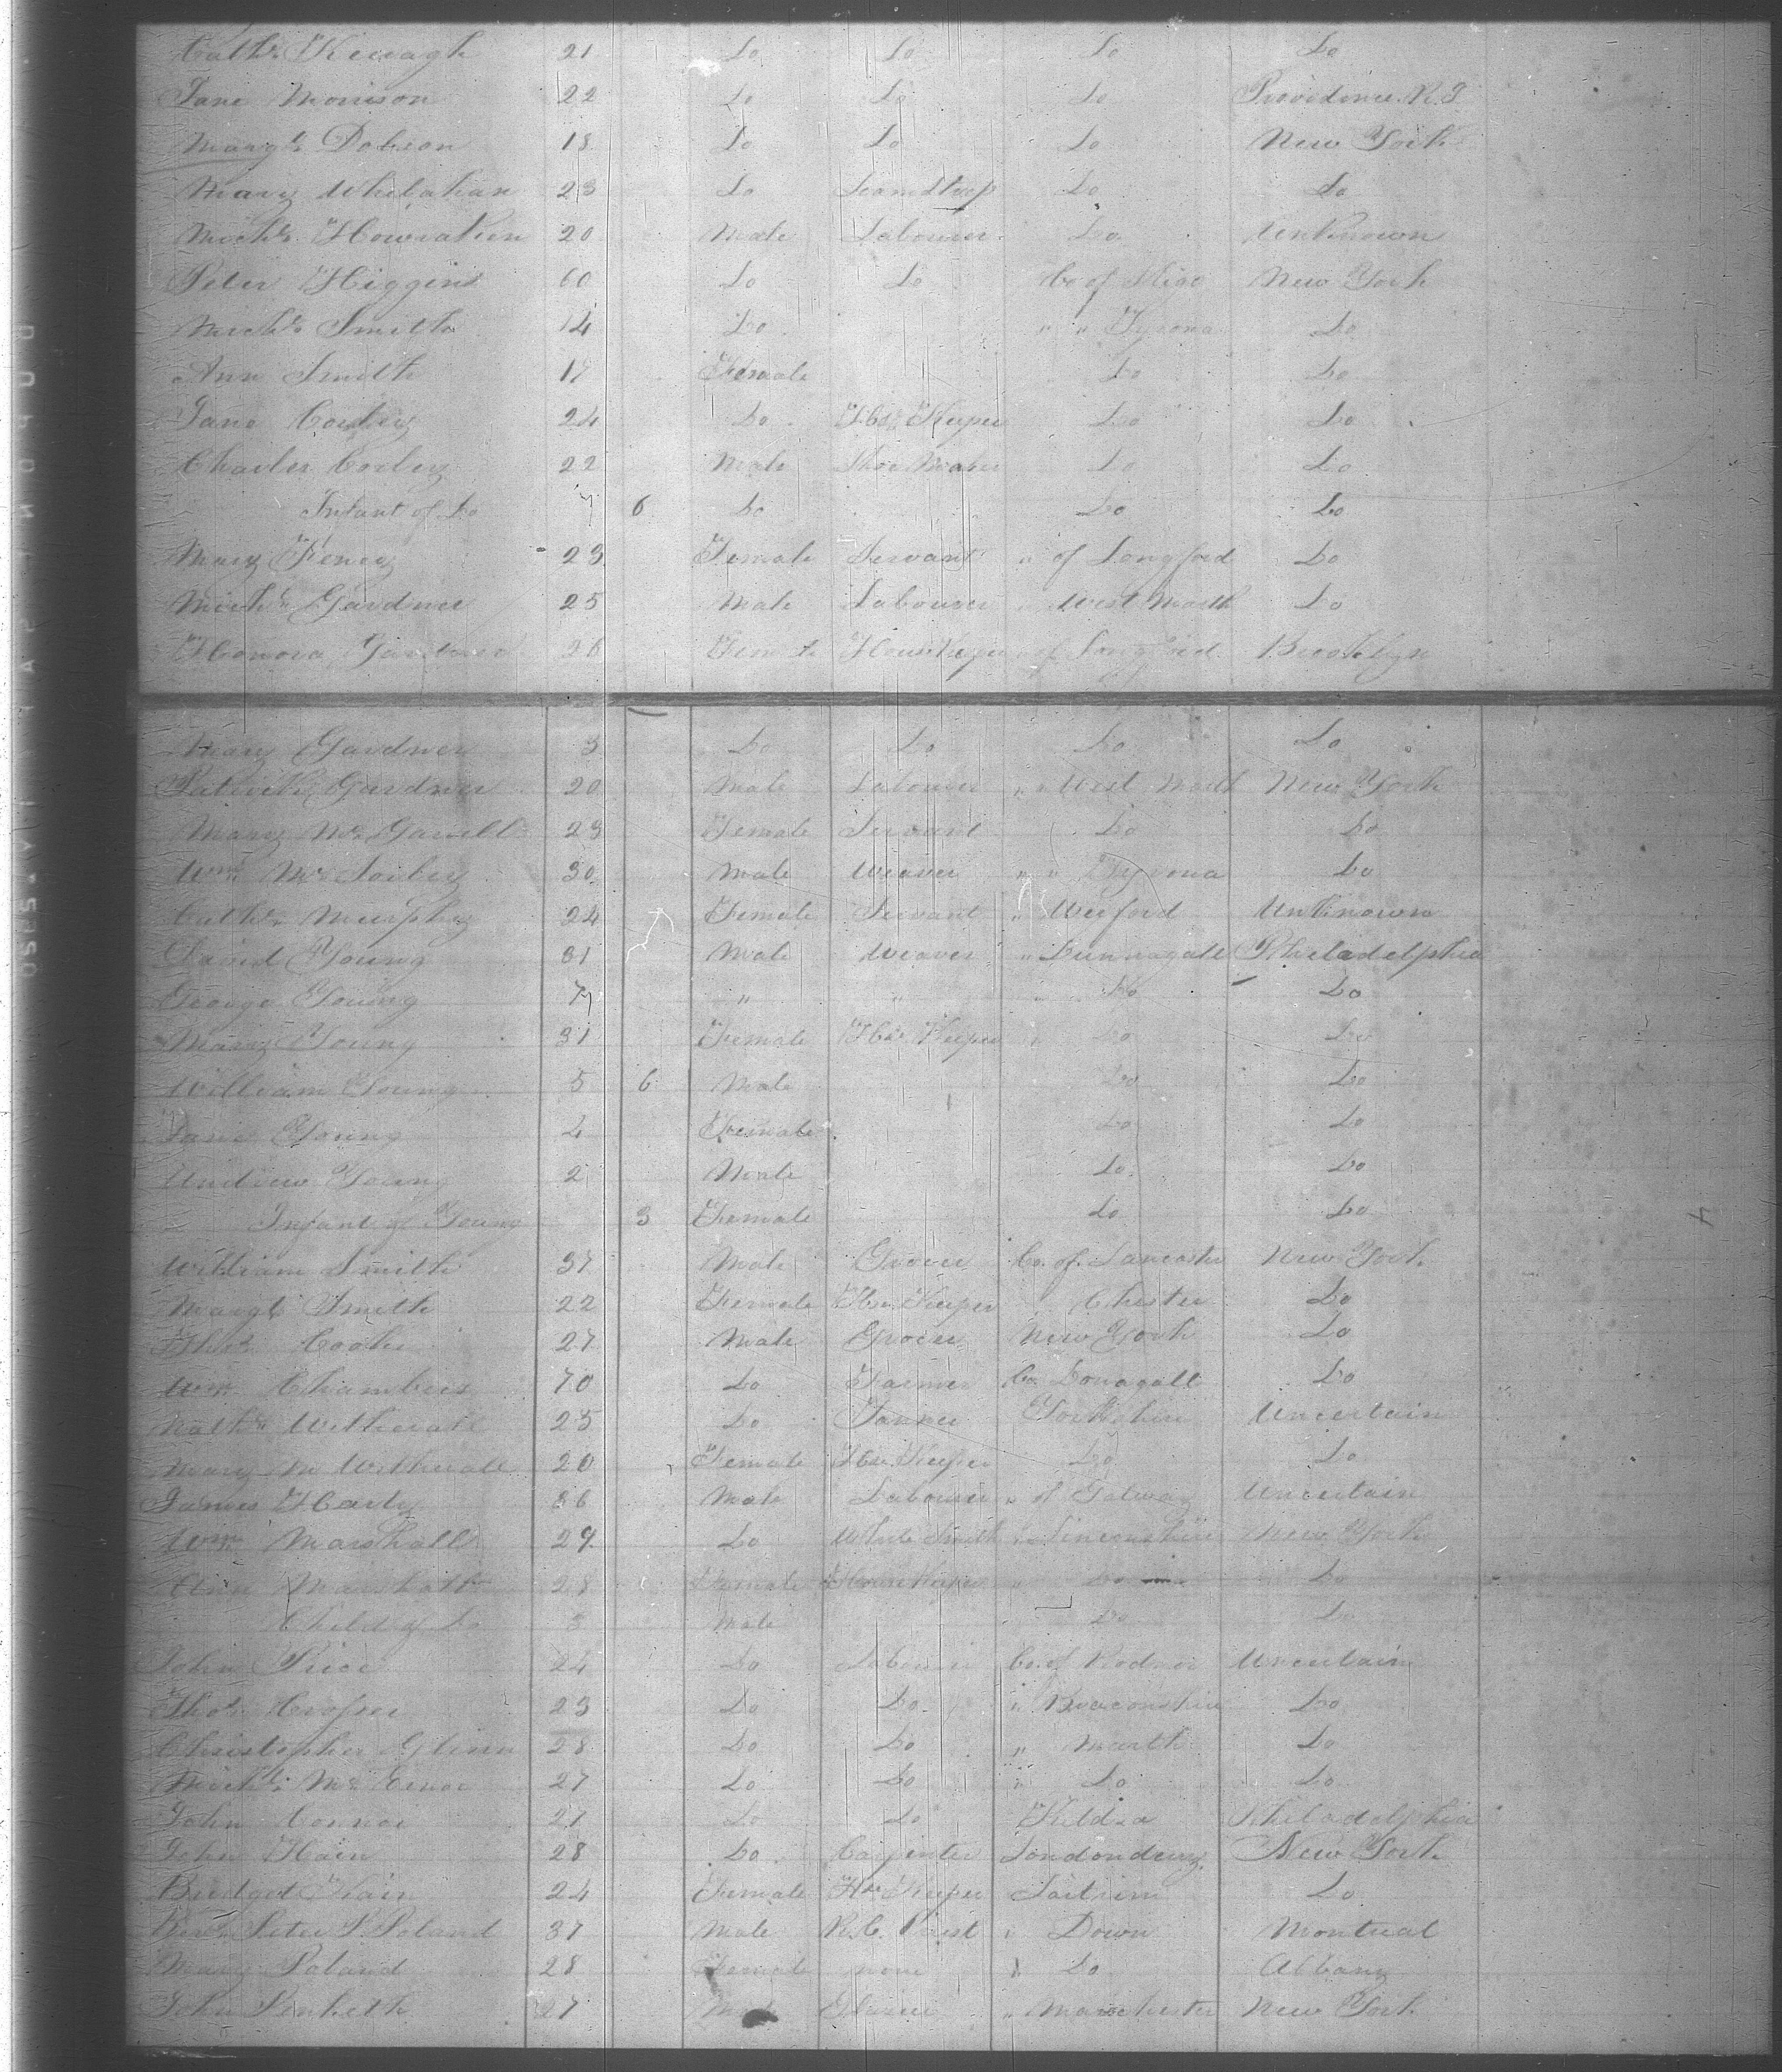 Cathe Kavagh 21 Do Do Do Do
Jane Morrison 22 Do Do Do Providence R.I
Margt Dobson 18 Do Do Do New York
Mary Whelahan 23 Do Do Do
Michl 20 Male Labourer Do Unknown
Peter Higgins 60 Do Do Co of Sligo New York
Michl Smith 14 Do " " Tyrona Do
Ann Smith 19 Female Do Do
Jane Corley 24 Do Hse Keeper Do Do
Charles Corley 22 Male Shoe Maker Do Do
Infant of Do 6 Do Do Do
Mary Feney 23 Female Servant " of Longford Do
Michl Gardner 25 Male Labourer " West Meath Do
Honora Gardner 26 Female House Keeper " of Longford Brooklyn
Mary Gardner 3 Do Do Do Do
Patrick Gardner 20 Male Labourer " " West Meath New York
Mary 23 Female Servant Do Do
Wm Mc Sorley 30 Male Weaver " " Tyrona Do
Cathe Murphy 24 Female Servant " Wexford Unknown
David Young 31 Male Weaver " Dunnagall Philadelphia
George Young 7 " " " Do Do
Mary Young 31 Female Hse Keeper " Do Do
William Young 5 6 Male Do Do
Jane Young 4 Female Do Do
Andrew Young 2 Male Do Do
Infant of Young 3 Female Do Do
William Smith 37 Male Grocer Co. of Lancaster New York
Margt Smith 22 Female Hse Keeper " Chester Do
Thos Cooke 27 Male Grocer New York Do
Wm Chambers 70 Do Farmer Co Donagall Do
Nathl Witherall 25 Do Tanner Yorkshire Uncertain
Mary M Witherall 20 Female Hse Keeper Do Do
James Harty 36 Male Labourer " of Galway Uncertain
Wm Marshall 29 Do White Smith " Linconshire New York
Ann Marshall 28 Female House Keeper " Do Do
Child of Do 3 Male Do Do
John Price 24 Do Labourer Co. of Radnor Uncertain
Thos Cooper 23 Do Do " Breaconshire Do
Christopher Glinn 28 Do Do " Meath Do
Michl Mc 27 Do Do " Do Do
John Connor 21 Do Do Kildra Philadelphia
John Kain 28 Do Carpenter Londonderry New York
Bridget Kain 24 Female Hse Keeper Laitrim Do
Revd Peter P. Poland 37 Male R.C. Priest " Down Montreal
Mary Poland 28 Female none " Do Albany
John Penketh 27 Male " Manchester New York